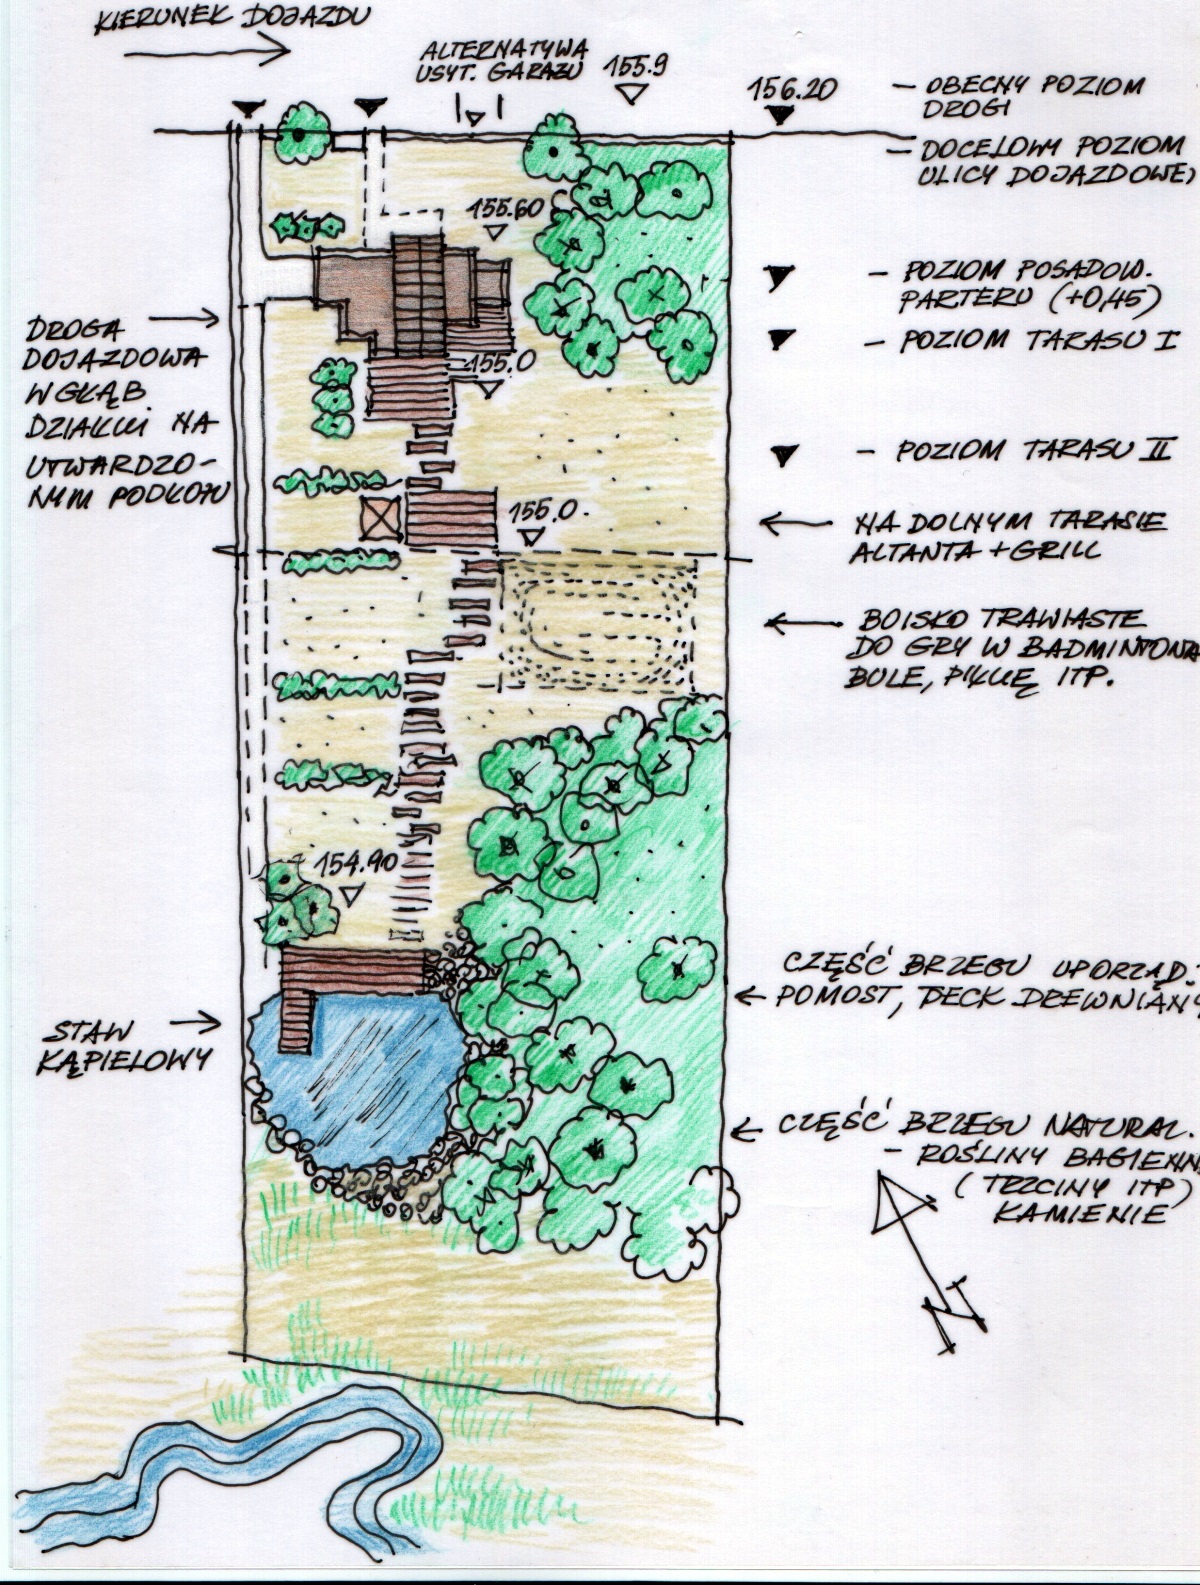 KIERUNEK DOJAZDU
ALTERNATYWA
USYT. GARAŻU
155.9
156.20
– OBECNY POZIOM
DROGI
– DOCELOWY POZIOM
ULICY DOJAZDOWEJ
155.60
– POZIOM POSADOW.
PARTERU (+0,45)
– POZIOM TARASU I
155.0
DROGA
DOJAZDOWA
W GŁĄB
DZIAŁKI NA
UTWARDZO-
NYM PODŁOŻU
– POZIOM TARASU II
155.0.
NA DOLNYM TARASIE
ALTANTA + GRILL
BOISKO TRAWIASTE
DO GRY W BADMINTONA
BULE, PIŁKĘ ITP.
154.90
CZĘŚĆ BRZEGU UPORZĄD.
POMOST, DECK DREWNIANY
STAW
KĄPIELOWY
CZĘŚĆ BRZEGU NATURAL.
– ROŚLINY BAGIENN
(TRZCINY ITP)
KAMIENIE
N